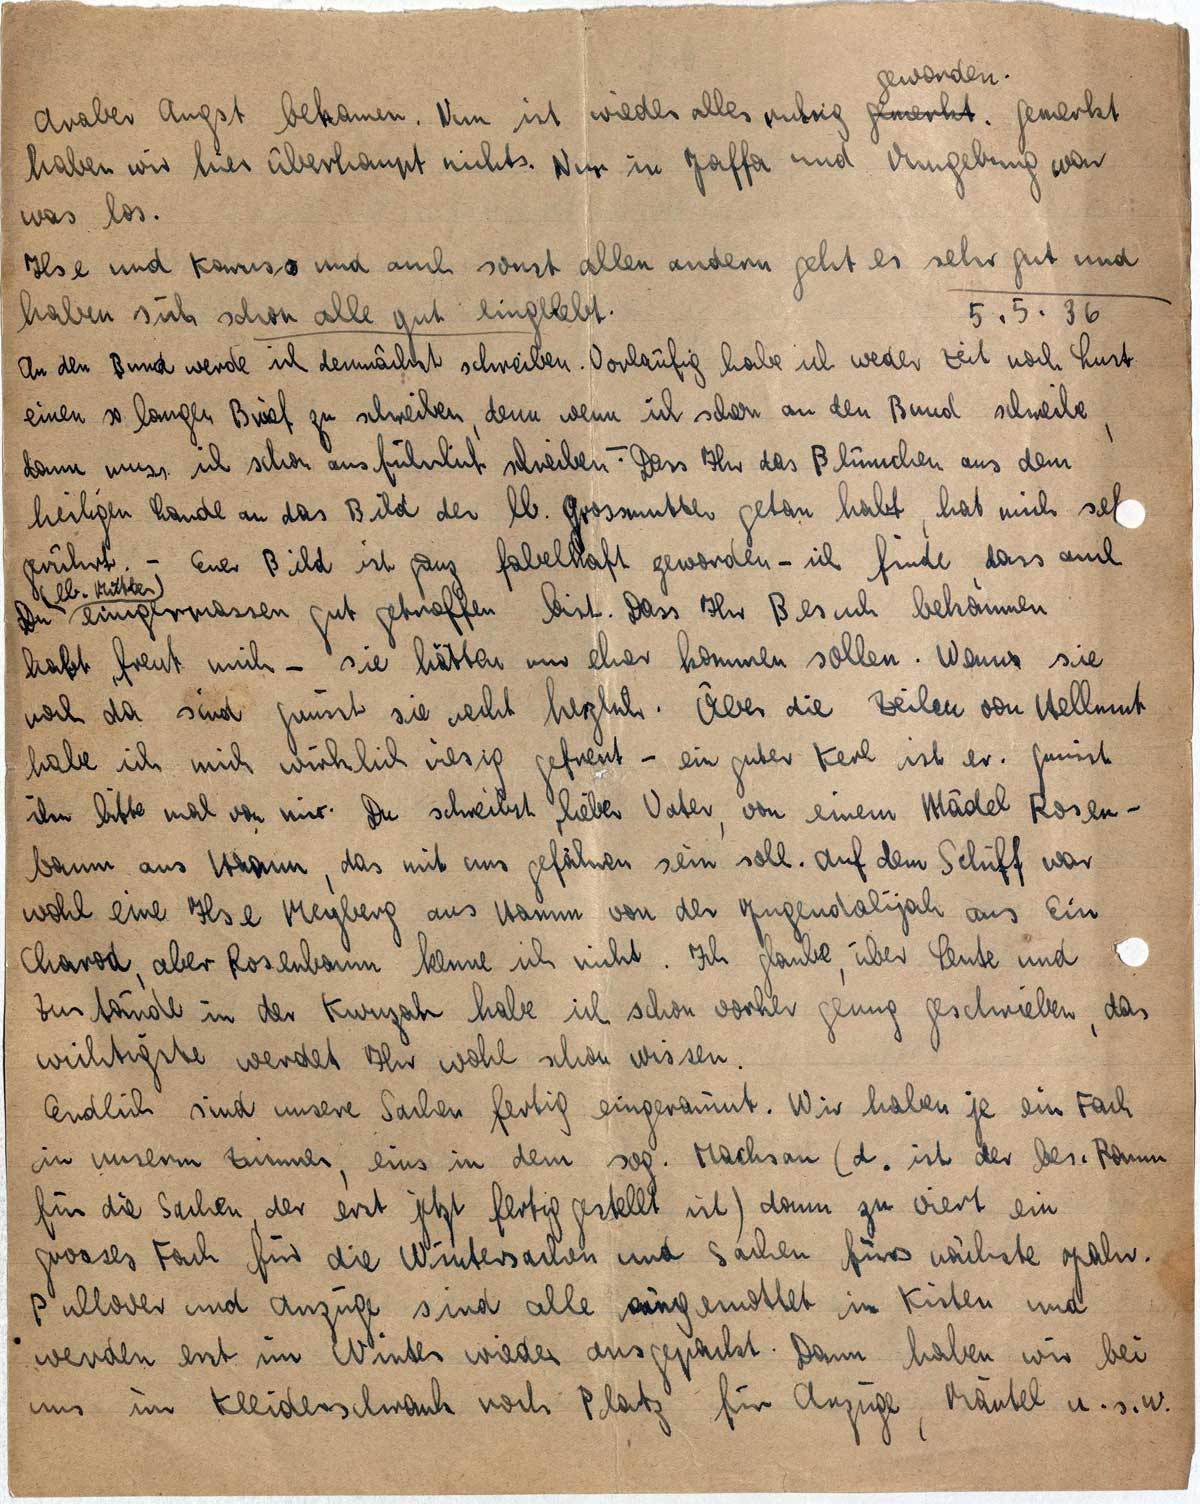 geworden.
Araber Angst bekamen. Nun ist wieder alles ruhig gemerkt. Gemerkt
haben wir hier überhaupt nichts. Nur in Jaffa und Umgebung war
was los.
Ilse und Karuso und auch sonst allen andern geht es sehr gut und
haben sich schon alle gut eingelebt.
5.5.36
An den Bund werde ich demnächst schreiben. Vorläufig habe ich weder Zeit noch Lust
einen so langen Brief zu schreiben, denn wenn ich schon an den Bund schreibe,
dann muss ich schon ausführlich schreiben. - Dass Ihr das Blümchen aus dem
heiligen Lande an das Bild der lb. Grossmutter getan habt, hat mich seh
gerührt. - Euer Bild ist ganz fabelhaft geworden - ich finde, dass auch
(lb. Mutter)
Du einigermassen gut getroffen bist. Dass Ihr Besuch bekommen
habt, freut mich - sie hätten nur eher kommen sollen. Wenns sie
noch da sind grüsst sie recht herzlich. Über die Zeilen von Hellmut
habe ich mich wirklich riesig gefreut - ein guter Kerl ist er. Grüsst
ihn bitte mal von mir. Du schreibst, lieber Vater, von einem Mädel Rosen-
baum aus Hamm, das mit uns gefahren sein soll. Auf dem Schiff war
wohl eine Ilse Meyberg aus Hamm von der Jugendalijah aus Ein
Charod, aber Rosenbaum kenne ich nicht. Ich glaube, über Leute und
Zustände in der Kwuzah habe ich schon vorher genug geschrieben, das
wichtigste werdet Ihr wohl schon wissen.
Endlich sind unsere Sachen fertig eingeräumt. Wir haben je ein Fach
in unserm Zimmer, eins in dem sog. Machsan (d. ist der bes. Raum
für die Sachen, der erst jetzt fertig gestellt ist) dann zu viert ein
grosses Fach für die Wintersachen und Sachen fürs nächste
Pullover und Anzüge sind alle eingemottet in Kisten und
werden erst im Winter wieder ausgepackt. Dann haben wir bei
uns im Kleiderschrank noch Platz für Anzüge, Mäntel u.s.w.